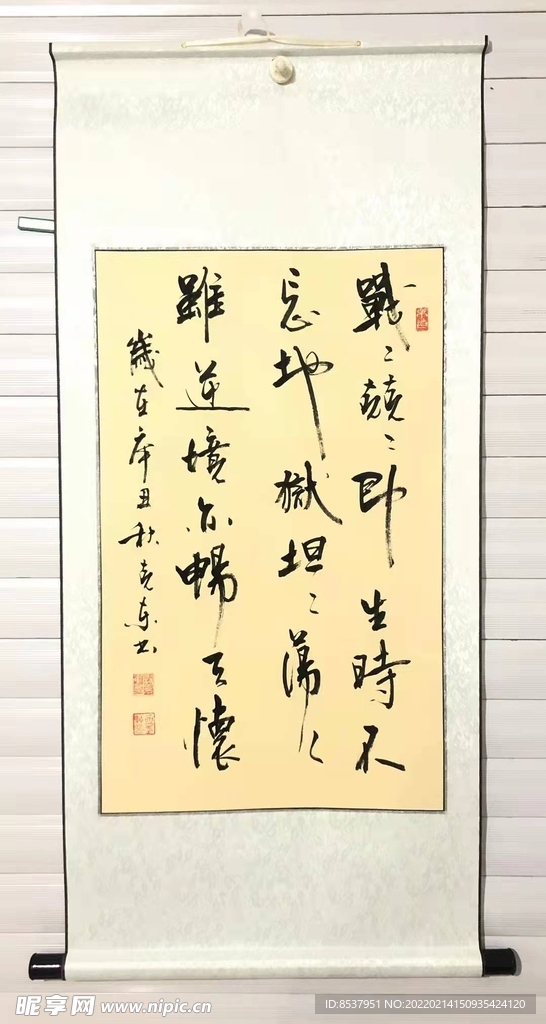 戰〻兢〻即生時不
忘地獄坦〻蕩〻
雖逆境亦暢天懷
歲在辛丑秋克東书
昵享网 www.nipic.cn
ID:8537951 NO:20220214150935424120